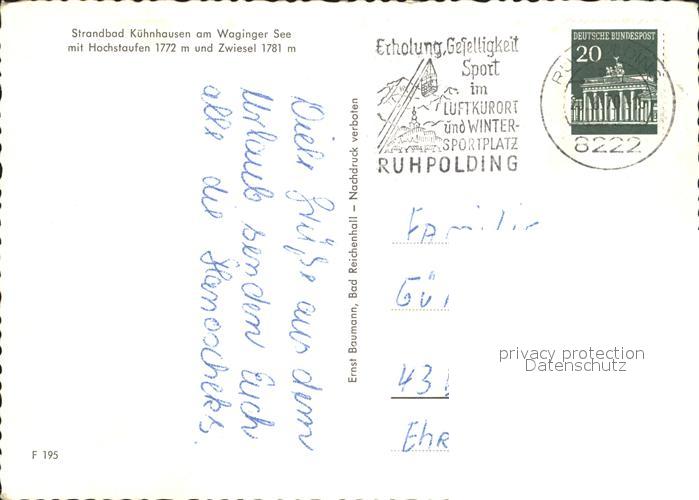 Strandbad Kühnhausen am Waginger See
mit Hochstaufen 1772 m und Zwiesel 1781 m
Erholung, Geselligkeit
Sport
im
LUFTKURORT
und WINTER-
SPORTPLATZ
RUHPOLDING
DEUTSCHE BUNDESPOST
20
8222
Viele Grüße aus dem
Urlaub senden Euch
alle die
Ernst Baumann, Bad Reichenhall – Nachdruck verboten
Familie
Gü
43
Ehr
privacy protection
Datenschutz
F 195